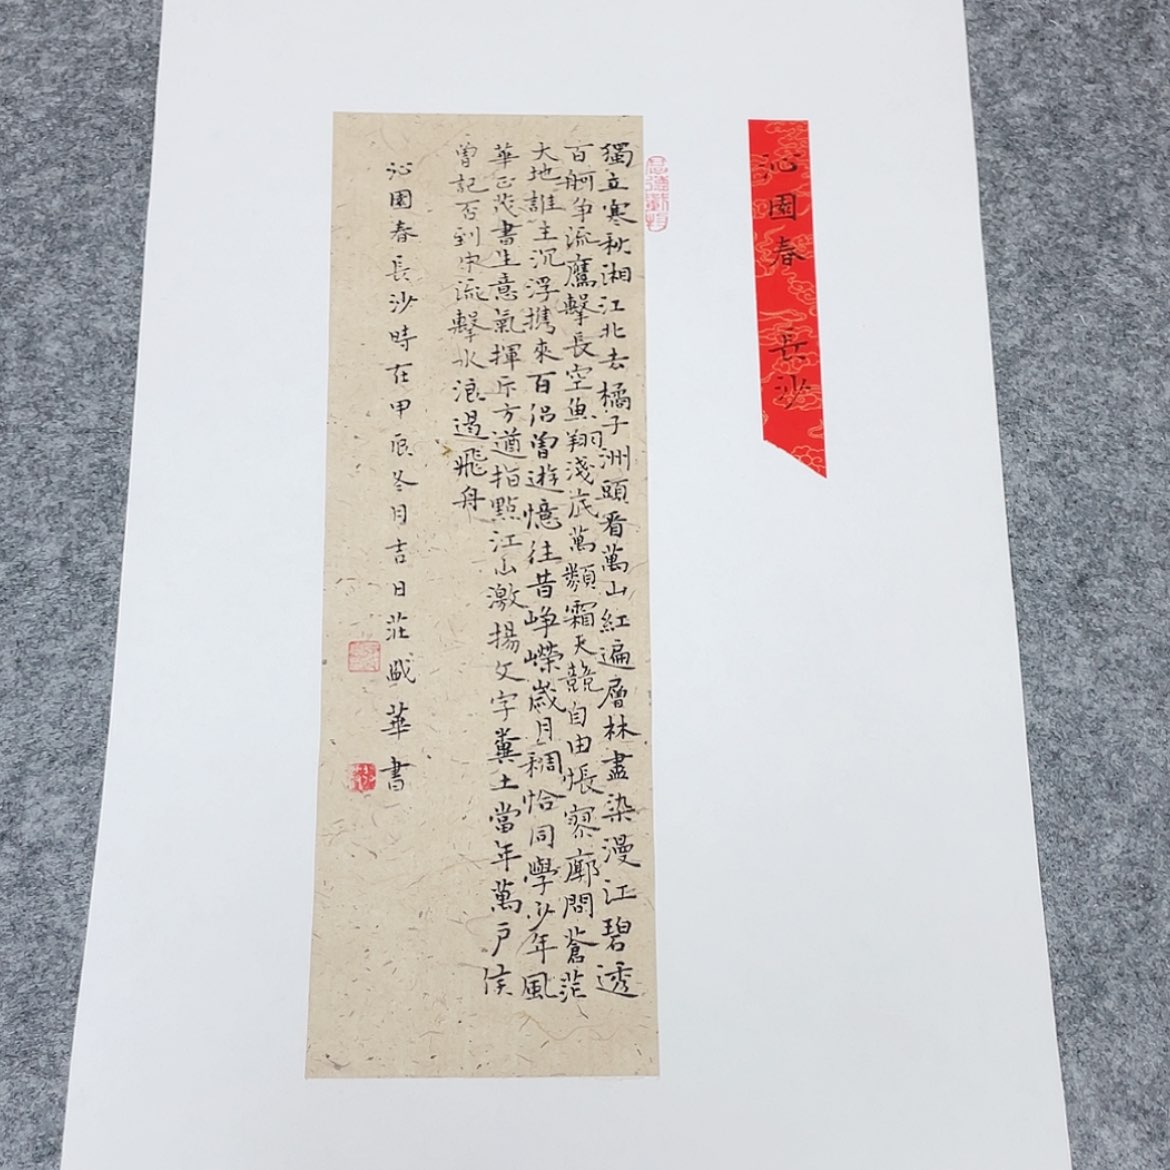 沁園春 長沙
厚德載物
獨立寒秋湘江北去橘子洲頭看萬山紅遍層林盡染漫江碧透
百舸争流鷹擊長空魚翔淺底萬類霜天競自由悵寥廓問蒼茫
大地誰主沉浮攜來百侣曾遊憶往昔崢嶸歲月稠恰同學少年風
華正茂書生意氣揮斥方遒指點江山激揚文字糞土當年萬户侯
曾記否到中流擊水浪遏飛舟
沁園春長沙時在甲辰冬月吉日莊盛華書